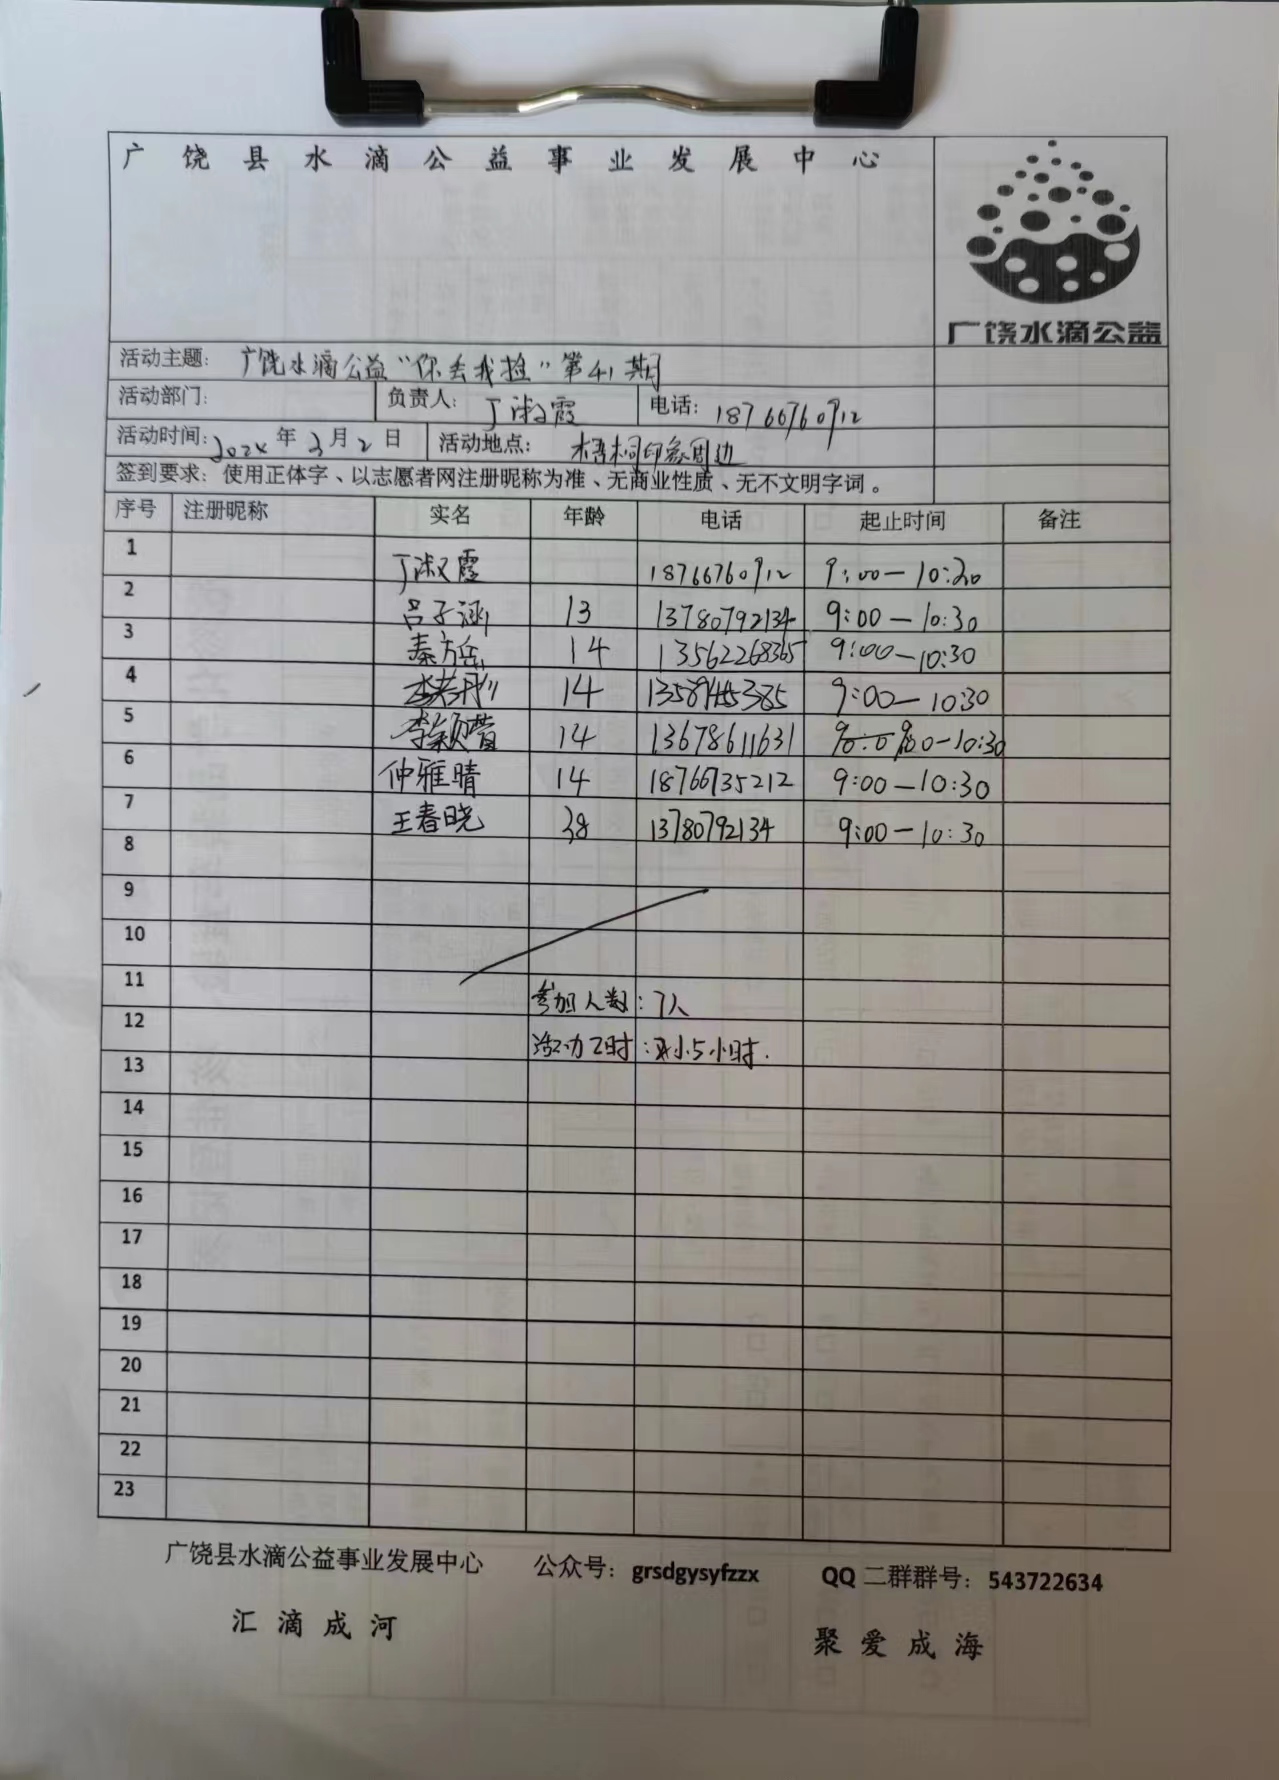 广饶县水滴公益事业发展中心
广饶水滴公益
活动主题：广饶水滴公益“你丢我捡”第41期
活动部门： 负责人：丁淑霞 电话：18766760912
活动时间：2024年3月2日 活动地点：梧桐印象周边
签到要求：使用正体字、以志愿者网注册昵称为准、无商业性质、无不文明字词。
序号 注册昵称 实名 年龄 电话 起止时间 备注
1 丁淑霞 18766760912 9:00-10:30
2 吕子涵 13 13780792134 9:00-10:30
3 秦方岳 14 13562268365 9:00-10:30
4 14 9:00-10:30
5 李颖萱 14 13678611631 9:00-10:30
6 仲雅晴 14 18766735212 9:00-10:30
7 王春晓 38 13780792134 9:00-10:30
8
9
10
11 参加人数：7人
12 活动工时： 小时.
13
14
15
16
17
18
19
20
21
22
23
广饶县水滴公益事业发展中心 公众号：grsdgysyfzzx QQ二群群号：543722634
汇滴成河 聚爱成海